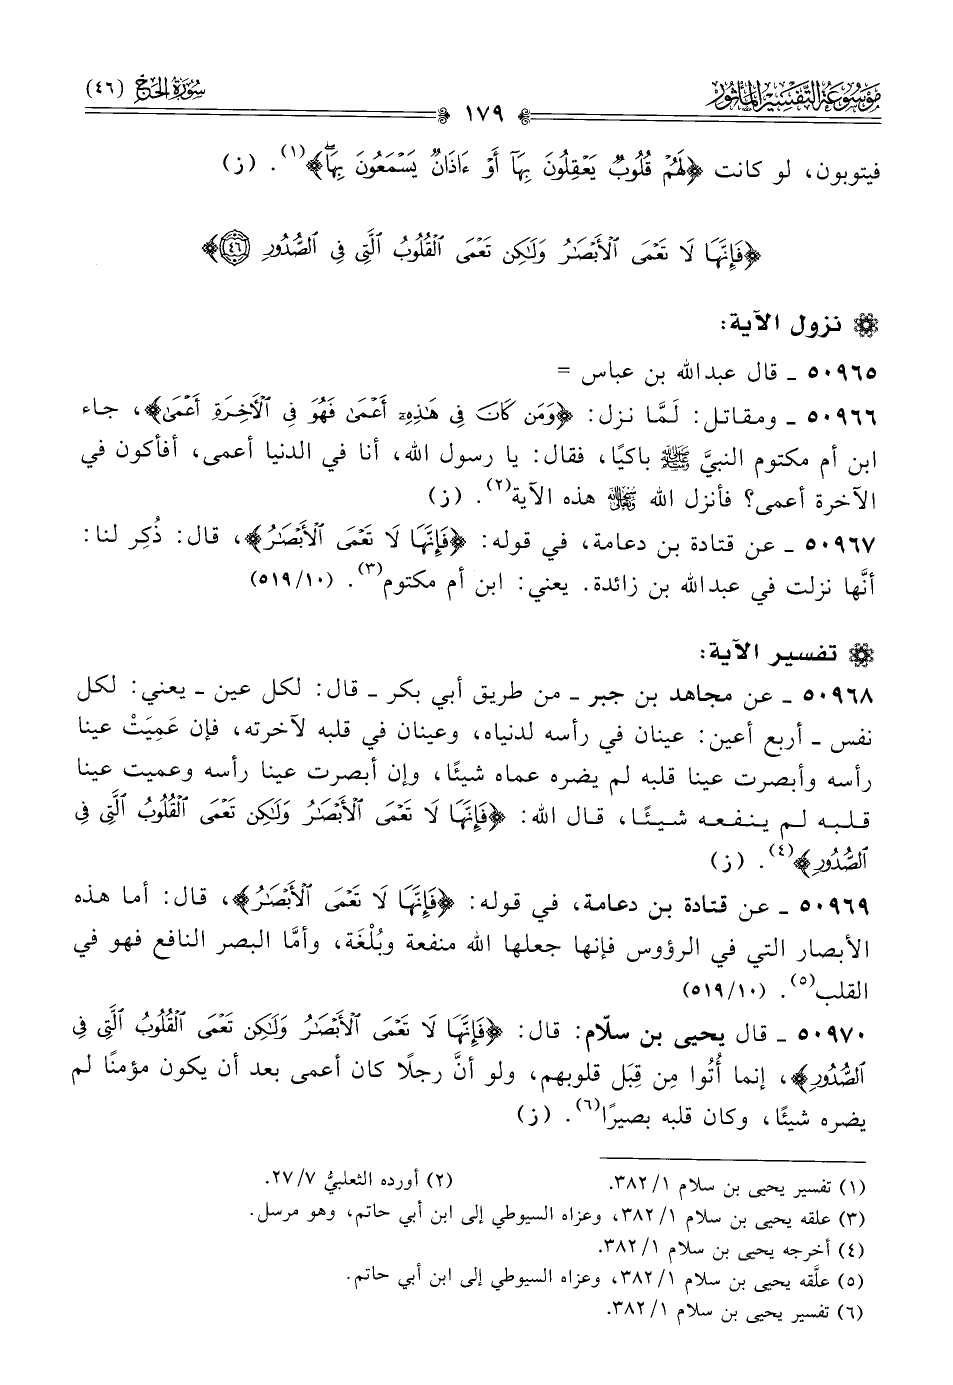 مَوْسُوعَة التَّفْسِيرِ المَأْثُور
سُورَةُ الحَجِّ (٤٦)
١٧٩
فيتوبون، لو كانت ﴿لَهُمْ قُلُوبٌ يَعْقِلُونَ بِهَآ أَوْ ءَاذَانٌ يَسْمَعُونَ بِهَا﴾(١). (ز)
﴿فَإِنَّهَا لَا تَعْمَى ٱلْأَبْصَٰرُ وَلَٰكِن تَعْمَى ٱلْقُلُوبُ ٱلَّتِى فِى ٱلصُّدُورِ ٤٦﴾
نزول الآية:
٥٠٩٦٥ ـ قال عبدالله بن عباس =
٥٠٩٦٦ ـ ومقاتل: لَمَّا نزل: ﴿وَمَن كَانَ فِى هَٰذِهِۦٓ أَعْمَىٰ فَهُوَ فِى ٱلْأَخِرَةِ أَعْمَىٰ﴾، جاء
ابن أم مكتوم النبيَّ ﷺ باكيًا، فقال: يا رسول الله، أنا في الدنيا أعمى، أفأكون في
الآخرة أعمى؟ فأنزل الله ﷻ هذه الآية(٢). (ز)
٥٠٩٦٧ ـ عن قتادة بن دعامة، في قوله: ﴿فَإِنَّهَا لَا تَعْمَى ٱلْأَبْصَٰرُ﴾، قال: ذُكِر لنا:
أنَّها نزلت في عبدالله بن زائدة. يعني: ابن أم مكتوم(٣). (٥١٩/١٠)
تفسير الآية:
٥٠٩٦٨ ـ عن مجاهد بن جبر ـ من طريق أبي بكر ـ قال: لكل عين ـ يعني: لكل
نفس ـ أربع أعين: عينان في رأسه لدنياه، وعينان في قلبه لآخرته، فإن عَمِيَتْ عينا
رأسه وأبصرت عينا قلبه لم يضره عماه شيئًا، وإن أبصرت عينا رأسه وعميت عينا
قلبه لم ينفعه شيئًا، قال الله: ﴿فَإِنَّهَا لَا تَعْمَى ٱلْأَبْصَٰرُ وَلَٰكِن تَعْمَى ٱلْقُلُوبُ ٱلَّتِى فِى
ٱلصُّدُورِ﴾(٤). (ز)
٥٠٩٦٩ ـ عن قتادة بن دعامة، في قوله: ﴿فَإِنَّهَا لَا تَعْمَى ٱلْأَبْصَٰرُ﴾، قال: أما هذه
الأبصار التي في الرؤوس فإنها جعلها الله منفعة وبُلْغَة، وأمَّا البصر النافع فهو في
القلب(٥). (٥١٩/١٠)
٥٠٩٧٠ ـ قال يحيى بن سلّام: قال: ﴿فَإِنَّهَا لَا تَعْمَى ٱلْأَبْصَٰرُ وَلَٰكِن تَعْمَى ٱلْقُلُوبُ ٱلَّتِى فِى
ٱلصُّدُورِ﴾، إنما أُتُوا مِن قِبَل قلوبهم، ولو أنَّ رجلًا كان أعمى بعد أن يكون مؤمنًا لم
يضره شيئًا، وكان قلبه بصيرًا(٦). (ز)
(١) تفسير يحيى بن سلام ٣٨٢/١. (٢) أورده الثعلبيُّ ٢٧/٧.
(٣) علقه يحيى بن سلام ٣٨٢/١، وعزاه السيوطي إلى ابن أبي حاتم، وهو مرسل.
(٤) أخرجه يحيى بن سلام ٣٨٢/١.
(٥) علَّقه يحيى بن سلام ٣٨٢/١، وعزاه السيوطي إلى ابن أبي حاتم.
(٦) تفسير يحيى بن سلام ٣٨٢/١.